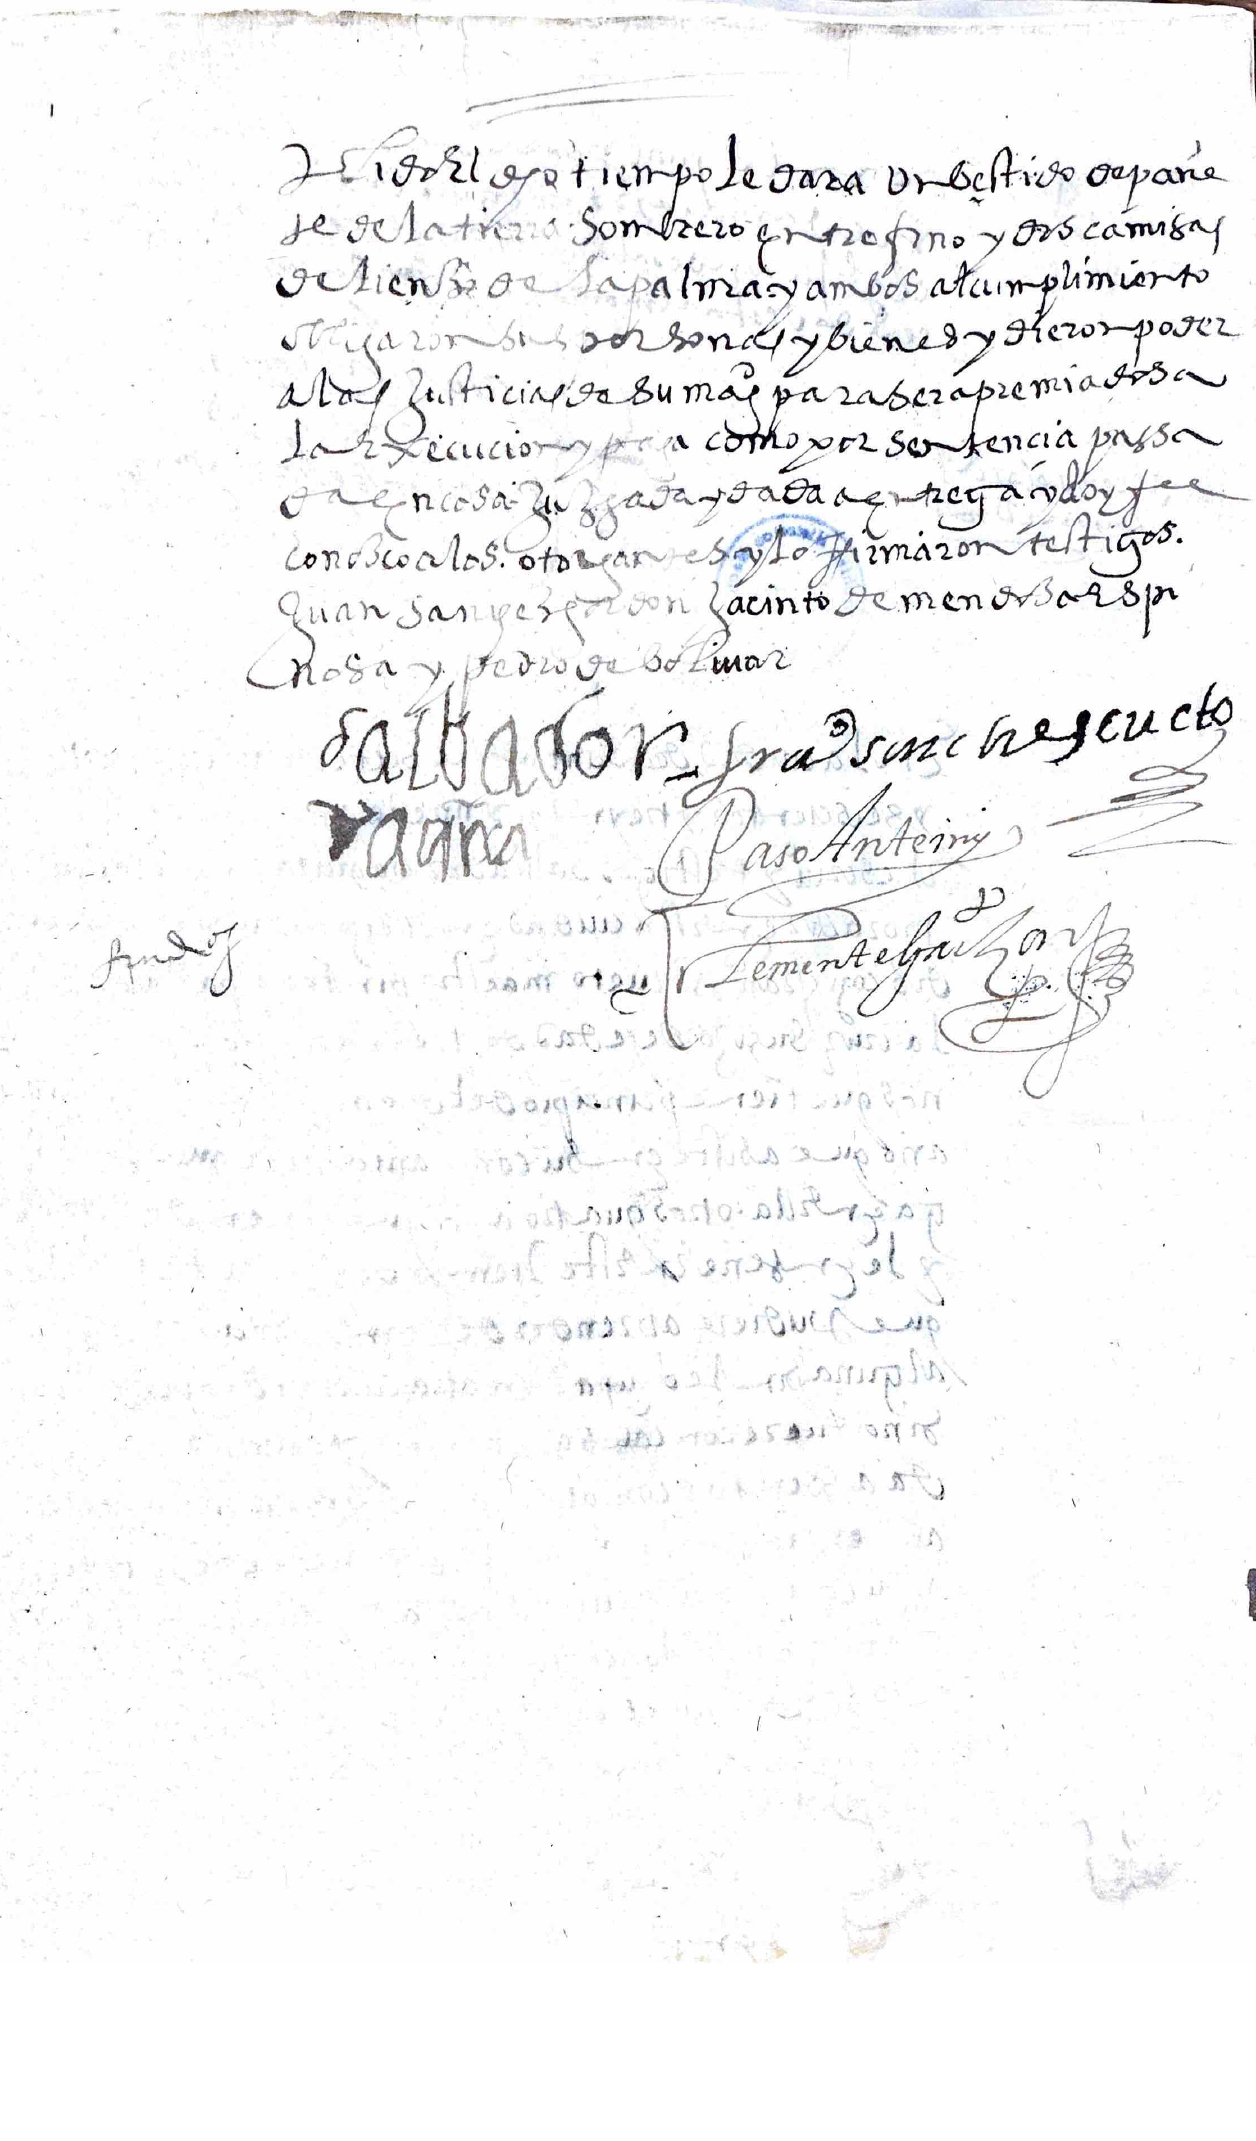 el dho tiempo le dara un bestido de pañe
te de la tierra sombrero entrefino y dos camisas
de lienso de la palma y ambos al cumplimiento
obligaron sus personas y bienes y dieron poder
a las Justicias de su magd para ser apremiados a
la execucion y paga como por sentencia passa
da en cosa Juzgada y dada a entrega y doy fee
conosco a los otorgantes y lo firmaron testigos
Juan sanches Jacinto de mendosa espi
nosa y pedro de bolivar
salbador franco sanches cueto
Paso Ante mi
Clemente